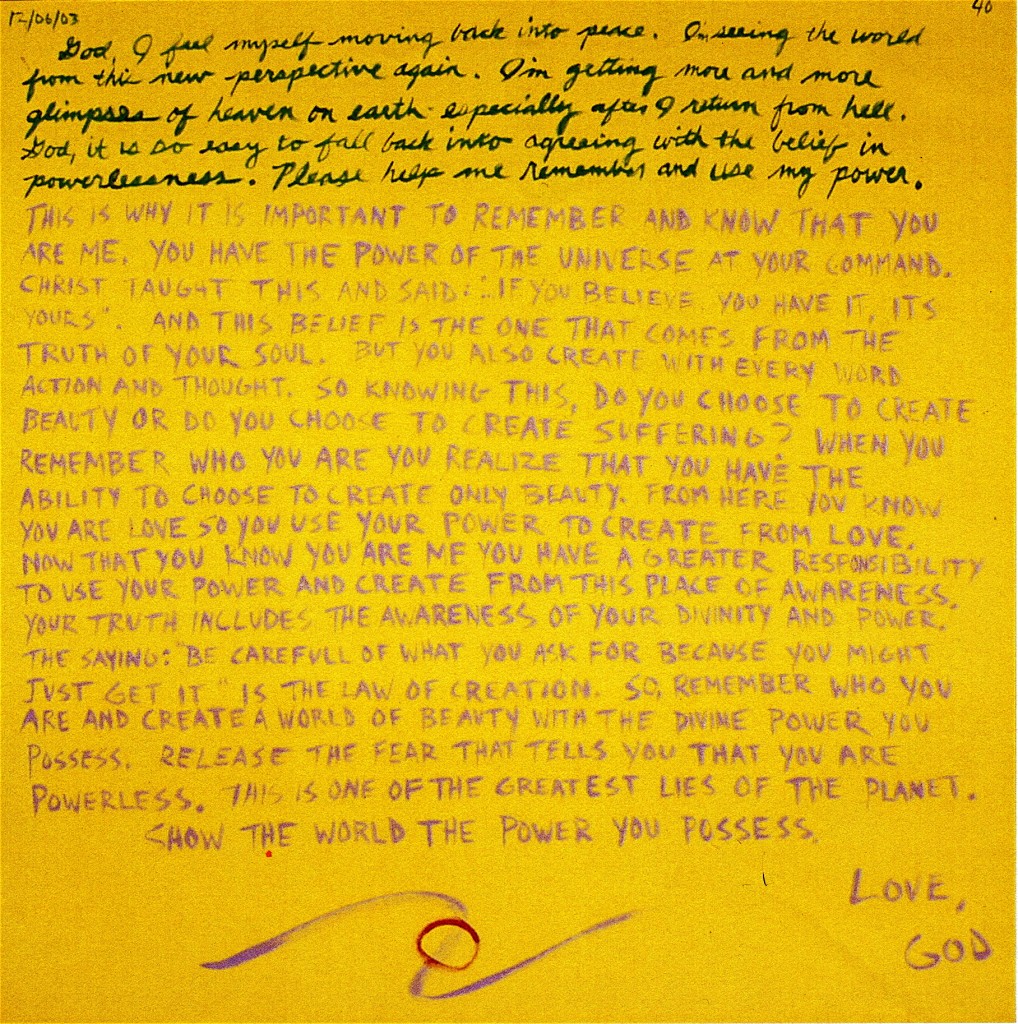 12/06/03
40
God, I feel myself moving back into peace. I'm seeing the world
from this new perspective again. I'm getting more and more
glimpses of heaven on earth especially after I return from hell.
God, it is so easy to fall back into agreeing with the belief in
powerlessness. Please help me remember and use my power.
THIS IS WHY IT IS IMPORTANT TO REMEMBER AND KNOW THAT YOU
ARE ME. YOU HAVE THE POWER OF THE UNIVERSE AT YOUR COMMAND.
CHRIST TAUGHT THIS AND SAID: "..IF YOU BELIEVE YOU HAVE IT, ITS
YOURS". AND THIS BELIEF IS THE ONE THAT COMES FROM THE
TRUTH OF YOUR SOUL. BUT YOU ALSO CREATE WITH EVERY WORD
ACTION AND THOUGHT. SO KNOWING THIS, DO YOU CHOOSE TO CREATE
BEAUTY OR DO YOU CHOOSE TO CREATE SUFFERING? WHEN YOU
REMEMBER WHO YOU ARE YOU REALIZE THAT YOU HAVE THE
ABILITY TO CHOOSE TO CREATE ONLY BEAUTY. FROM HERE YOU KNOW
YOU ARE LOVE SO YOU USE YOUR POWER TO CREATE FROM LOVE.
NOW THAT YOU KNOW YOU ARE ME YOU HAVE A GREATER RESPONSIBILITY
TO USE YOUR POWER AND CREATE FROM THIS PLACE OF AWARENESS.
YOUR TRUTH INCLUDES THE AWARENESS OF YOUR DIVINITY AND POWER.
THE SAYING: "BE CAREFULL OF WHAT YOU ASK FOR BECAUSE YOU MIGHT
JUST GET IT" IS THE LAW OF CREATION. SO, REMEMBER WHO YOU
ARE AND CREATE A WORLD OF BEAUTY WITH THE DIVINE POWER YOU
POSSESS. RELEASE THE FEAR THAT TELLS YOU THAT YOU ARE
POWERLESS. THIS IS ONE OF THE GREATEST LIES OF THE PLANET.
SHOW THE WORLD THE POWER YOU POSSESS.
LOVE,
GOD